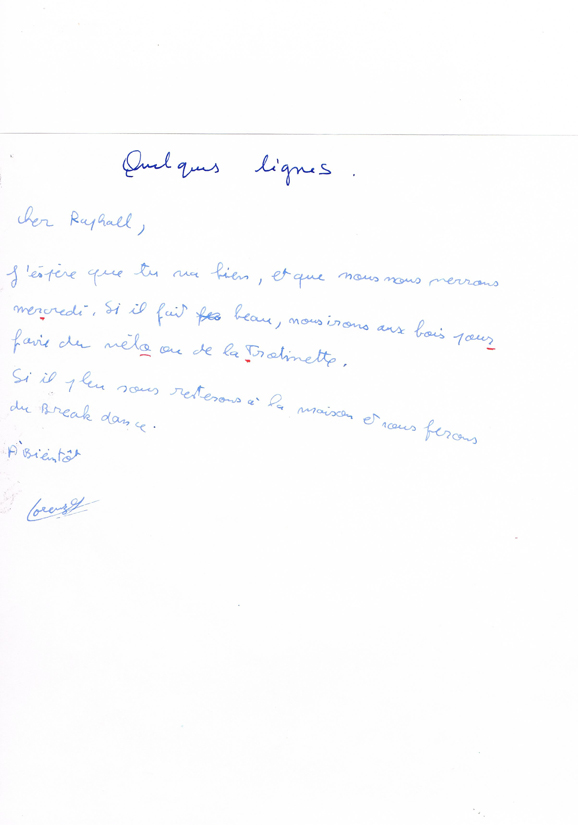 Quelques lignes.
cher Raphall,
J'éspère que tu va bien, et que nous nous verrons
mercredi. Si il fait beau, nous irons aux bois pour
faire du vélo ou de la Trotinette.
Si il pleu nous resterons à la maison et nous ferons
du Break dance.
A Bientôt